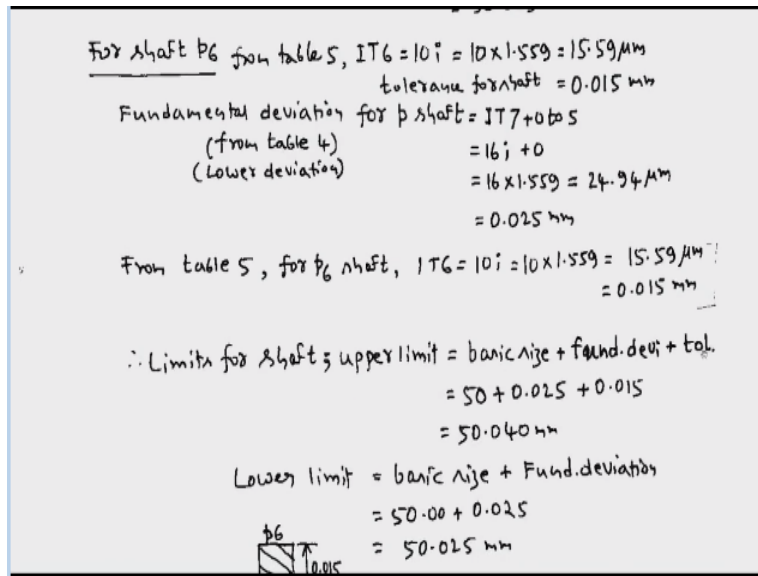 For shaft p6 from table 5, IT6 = 10i = 10 x 1.559 = 15.59 μm
tolerance for shaft = 0.015 mm
Fundamental deviation for p shaft = IT7 + 0 to 5
(from table 4) = 16i + 0
(Lower deviation) = 16 x 1.559 = 24.94 μm
= 0.025 mm
From table 5, for p6 shaft, IT6 = 10i = 10 x 1.559 = 15.59 μm
= 0.015 mm
∴ Limits for shaft; upper limit = basic size + fund. devi + tol.
= 50 + 0.025 + 0.015
= 50.040 mm
Lower limit = basic size + Fund. deviation
= 50.00 + 0.025
= 50.025 mm
p6
0.015